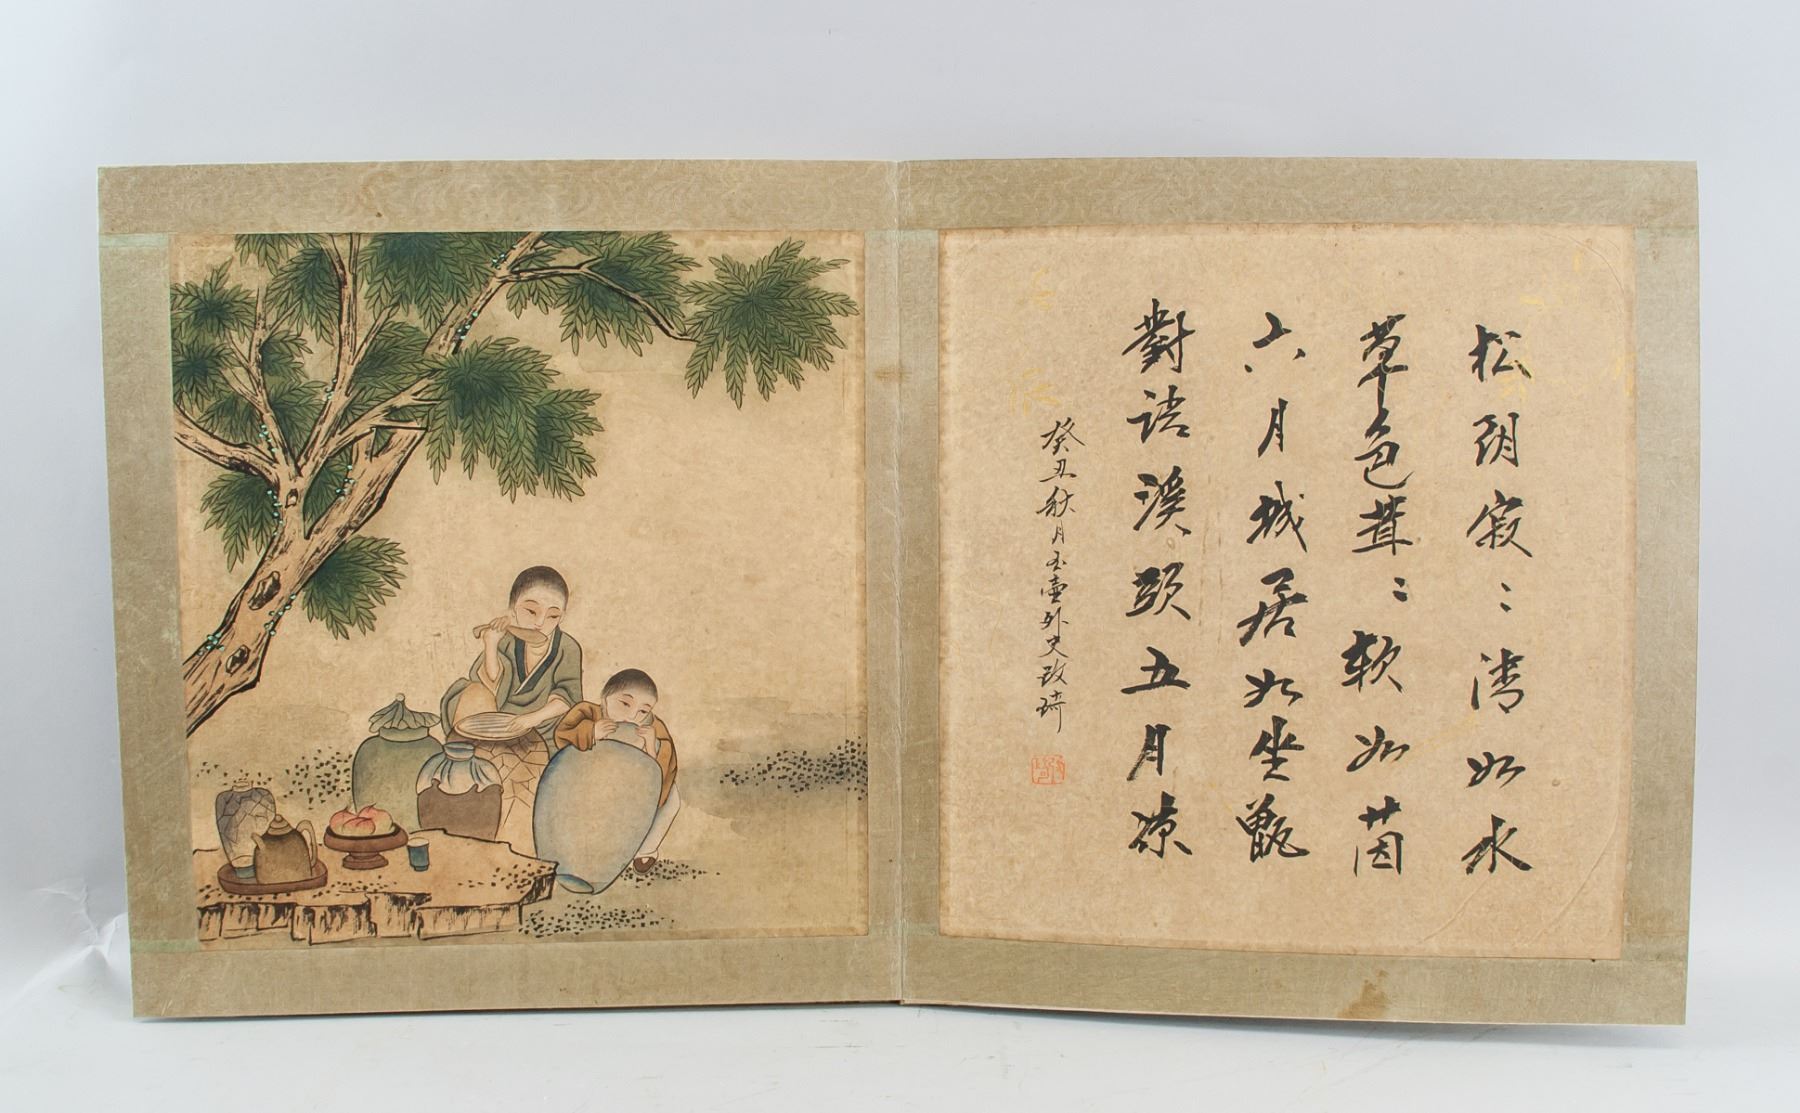 松阴寂〻清如水
草色茸〻軟如茵
六月城居如坐甑
對語溪頭五月凉
癸丑秋月玉壺外史改琦